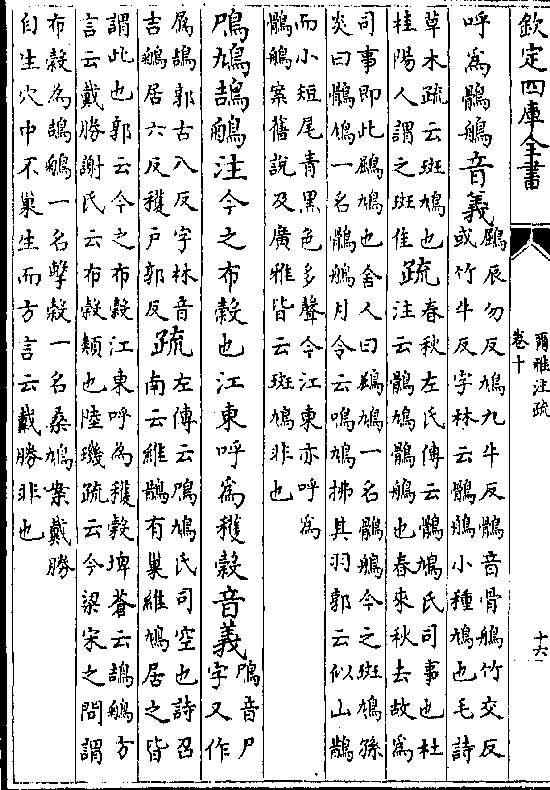 欽定四庫全書
爾雅注疏
卷十
十六
呼為鶻鵃音義
鶌辰勿反鳩九牛反鶻音骨鵃竹交反
或竹牛反字林云鶻鵃小種鳩也毛詩
草木疏云斑鳩也
桂陽人謂之斑隹
疏
春秋左氏傳云鶻鳩氏司事也杜
注云鶻鳩鶻鵃也春來秋去故為
司事即此鶌鳩也舍人曰鶌鳩一名鶻鵃今之斑鳩孫
炎曰鶻鳩一名鶻鵃月令云鳴鳩拂其羽郭云似山鵲
而小短尾青黑色多聲今江東亦呼為
鶻鵃案舊說及廣雅皆云斑鳩非也
鳲鳩鴶鵴注今之布穀也江東呼為穫穀音義
鳲音尸
字又作
鴶郭古八反字林音
吉鵴居六反穫戶郭反
疏
左傳云鳲鳩氏司空也詩召
南云維鵲有巢維鳩居之皆
謂此也郭云今之布穀江東呼為穫穀埤蒼云鴶鵴方
言云戴勝謝氏云布穀類也陸璣疏云今梁宋之間謂
布穀為鴶鵴一名擊穀一名桑鳩案戴勝
自生穴中不巢生而方言云戴勝非也